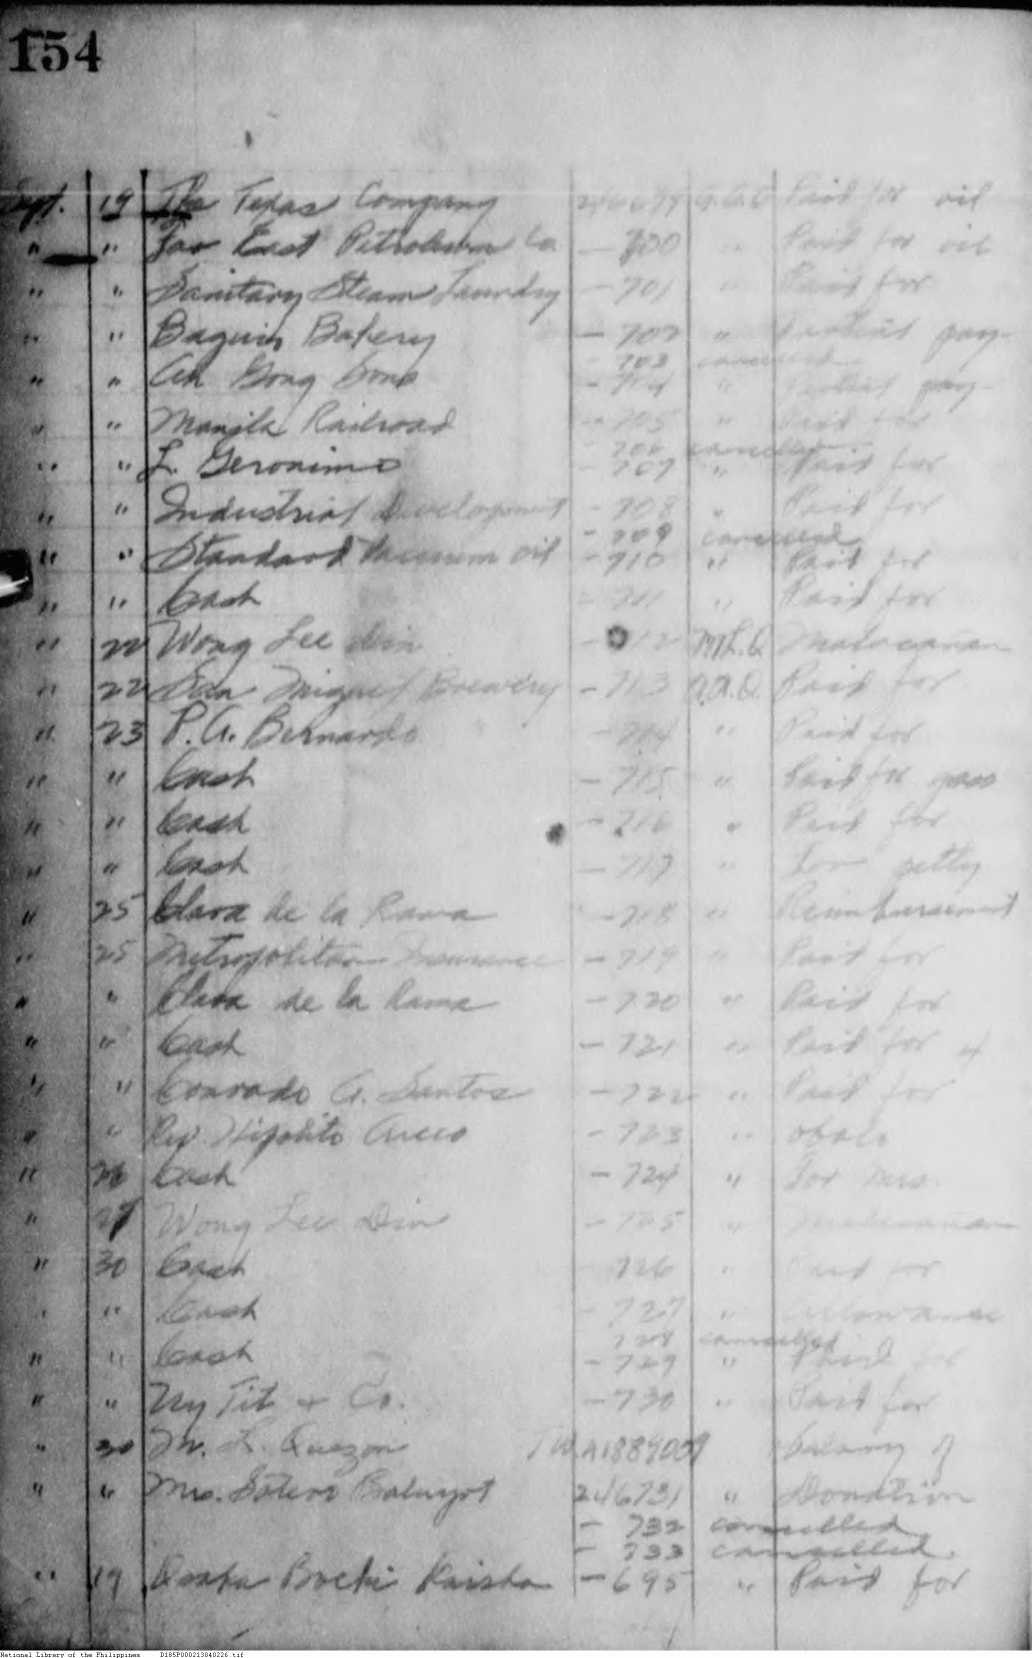 154
Sept. 19 The Texas Company 246699 A.A.Q Paid for oil
" " Far East Petroleum Co. - 700 " Paid for oil
" " Sanitary Steam Laundry - 701 " Paid for
" " Baguio Bakery - 702 " pay-
- 703 cancelled
" " Ah Gong Sons - 704 " pay-
" " Manila Railroad - 705 " Paid for
- 706 cancelled
" " L. Geronimo - 707 " Paid for
" " Industrial Development - 708 " Paid for
- 709 cancelled
" " Standard Vacuum oil - 710 " Paid for
" " Cash - 711 " Paid for
" 22 Wong Lee Din - 712 M.L.Q Malacañan
" 22 San Miguel Brewery - 713 A.A.Q. Paid for
" 23 P. A. Bernardo - 714 " Paid for
" " Cash - 715 " Paid for
" " Cash - 716 " Paid for
" " Cash - 717 " for petty
" 25 Clara de la Rama - 718 " Reimbursement
" 25 Metropolitan Insurance - 719 " Paid for
" " Clara de la Rama - 720 " Paid for
" " Cash - 721 " Paid for
" " Conrado A. Santos - 722 " Paid for
" " Hipolito - 723 "
" 26 Cash - 724 " For Mrs.
" 27 Wong Lee Din - 725 " Malacañan
" 30 Cash 726 " Paid for
" " Cash - 727 " Allowance
728 cancelled
" " Cash - 729 " Paid for
" " Uy Tit & Co. - 730 " Paid for
" 30 M. L. Quezon Salary of
" " Mrs. Sotero Baluyot 246731 " Donation
- 732 cancelled
- 733 cancelled.
" 19 Osaka Boeki Kaisha - 695 " Paid for
National Library of the Philippines D185P000213040226.tif